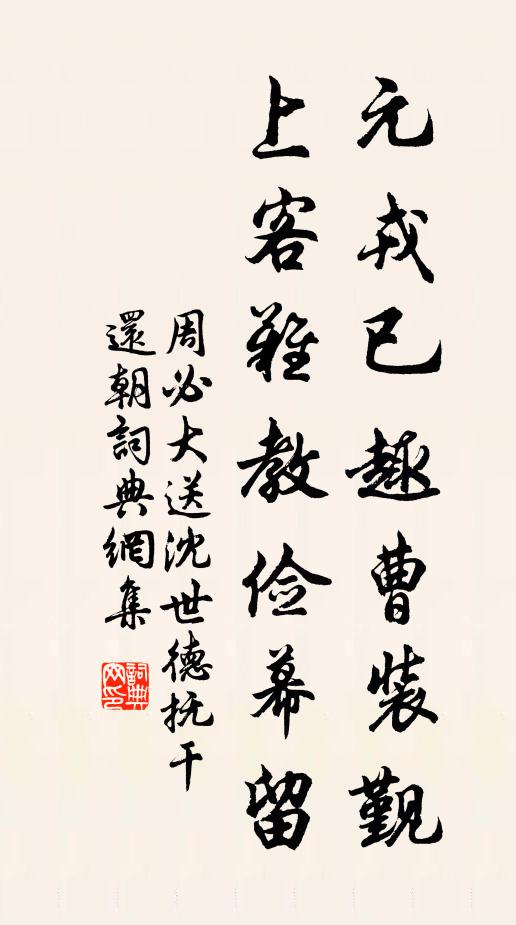 元戎已趣曹装觐
上客難教俭幕留
周必大送沈世德抚干
還朝詞典網集
詞典网印